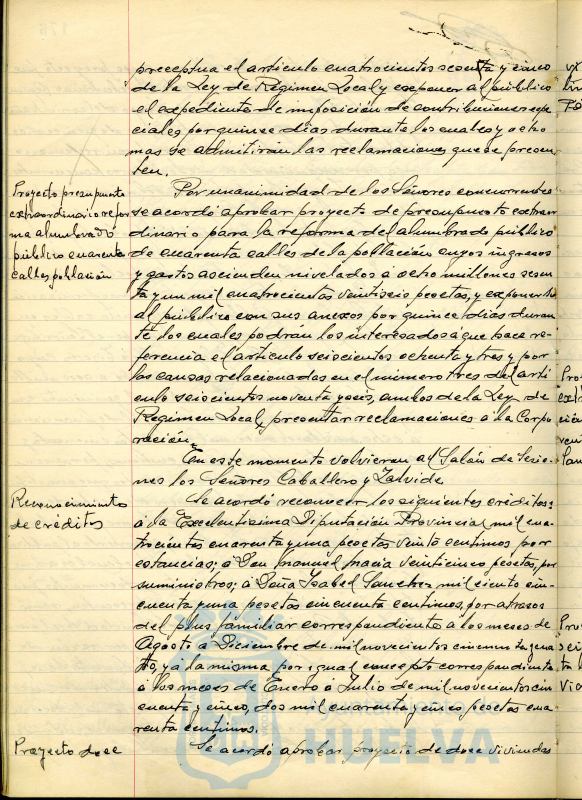 preceptua el artículo cuatrocientos sesenta y cinco
de la Ley de Régimen Local y exponer al público
el expediente de imposición de contribuciones espe
ciales por quince días durante los cuales y ocho
mas se admitirán las reclamaciones que se presen
ten.
Proyecto presupuesto
extraordinario refor
ma alumbrado
público cuarenta
calles población
Por unanimidad de los Señores concurrentes
se acordó aprobar proyecto de presupuesto extraor
dinario para la reforma del alumbrado público
de cuarenta calles de la población cuyos ingresos
y gastos ascienden nivelados a ocho millones sesen
ta y un mil cuatrocientos veintiseis pesetas, y exponerlo
al público con sus anexos por quince días duran
te los cuales podrán los interesados a que hace re
ferencia el artículo seiscientos ochenta y tres y por
las causas relacionadas en el número tres del artí
culo seiscientos noventa y seis, ambos de la Ley de
Régimen Local, presentar reclamaciones a la Corpo
ración.
En este momento volvieron al Salón de Sesio
nes los Señores Caballero y Zalvide.
Reconocimiento
de créditos
Se acordó reconocer los siguientes créditos:
á la Excelentísima Diputación Provincial mil cua
trocientos cuarenta y una pesetas veinte centimos por
estancias; á Don Manuel Macia veinticinco pesetas, por
suministros; á Doña Isabel Sanchez mil ciento cin-
cuenta y una pesetas cincuenta centimos, por atrasos
del plus familiar correspondiente a los meses de
Agosto a Diciembre de mil novecientos cincuenta y cua
tro, y á la misma por igual concepto correspondiente
á los meses de Enero á Julio de mil novecientos cin
cuenta y cinco, dos mil cuarenta y cinco pesetas cua
renta centimos.
Proyecto doce
Se acordó aprobar proyecto de doce viviendas
HUELVA